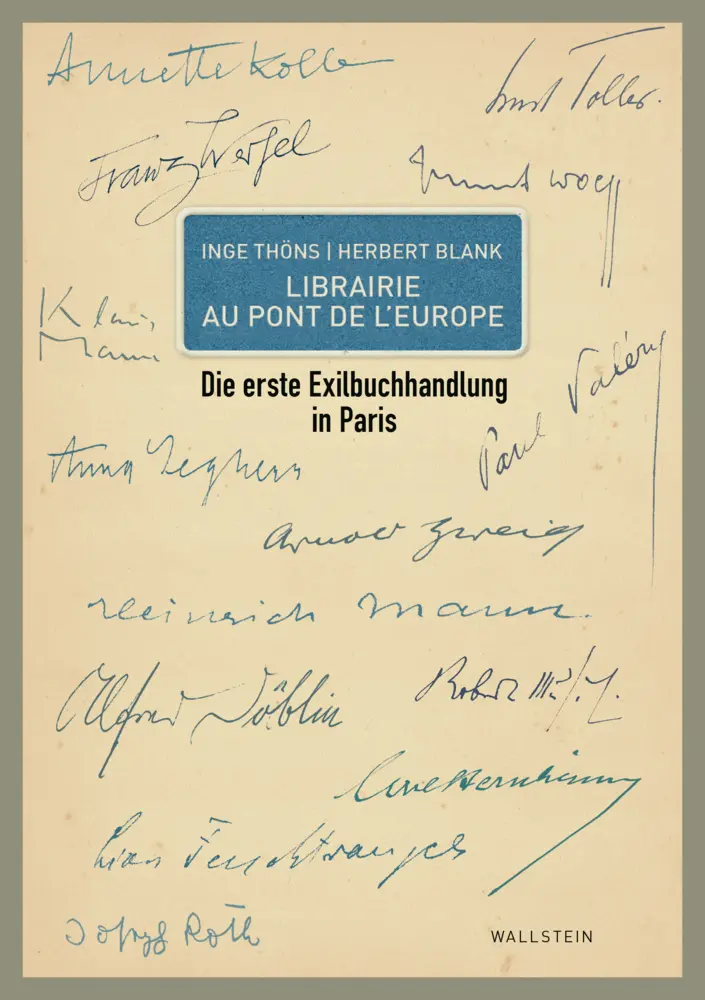 Annette Kolb
Ernst Toller.
Franz Werfel
INGE THÖNS | HERBERT BLANK
LIBRAIRIE
AU PONT DE L'EUROPE
Klaus
Mann
Die erste Exilbuchhandlung
in Paris
Paul Valéry
Anna Seghers
Arnold Zweig
Heinrich Mann.
Alfred Döblin
Robert Musil.
Lion Feuchtwanger
Joseph Roth
WALLSTEIN